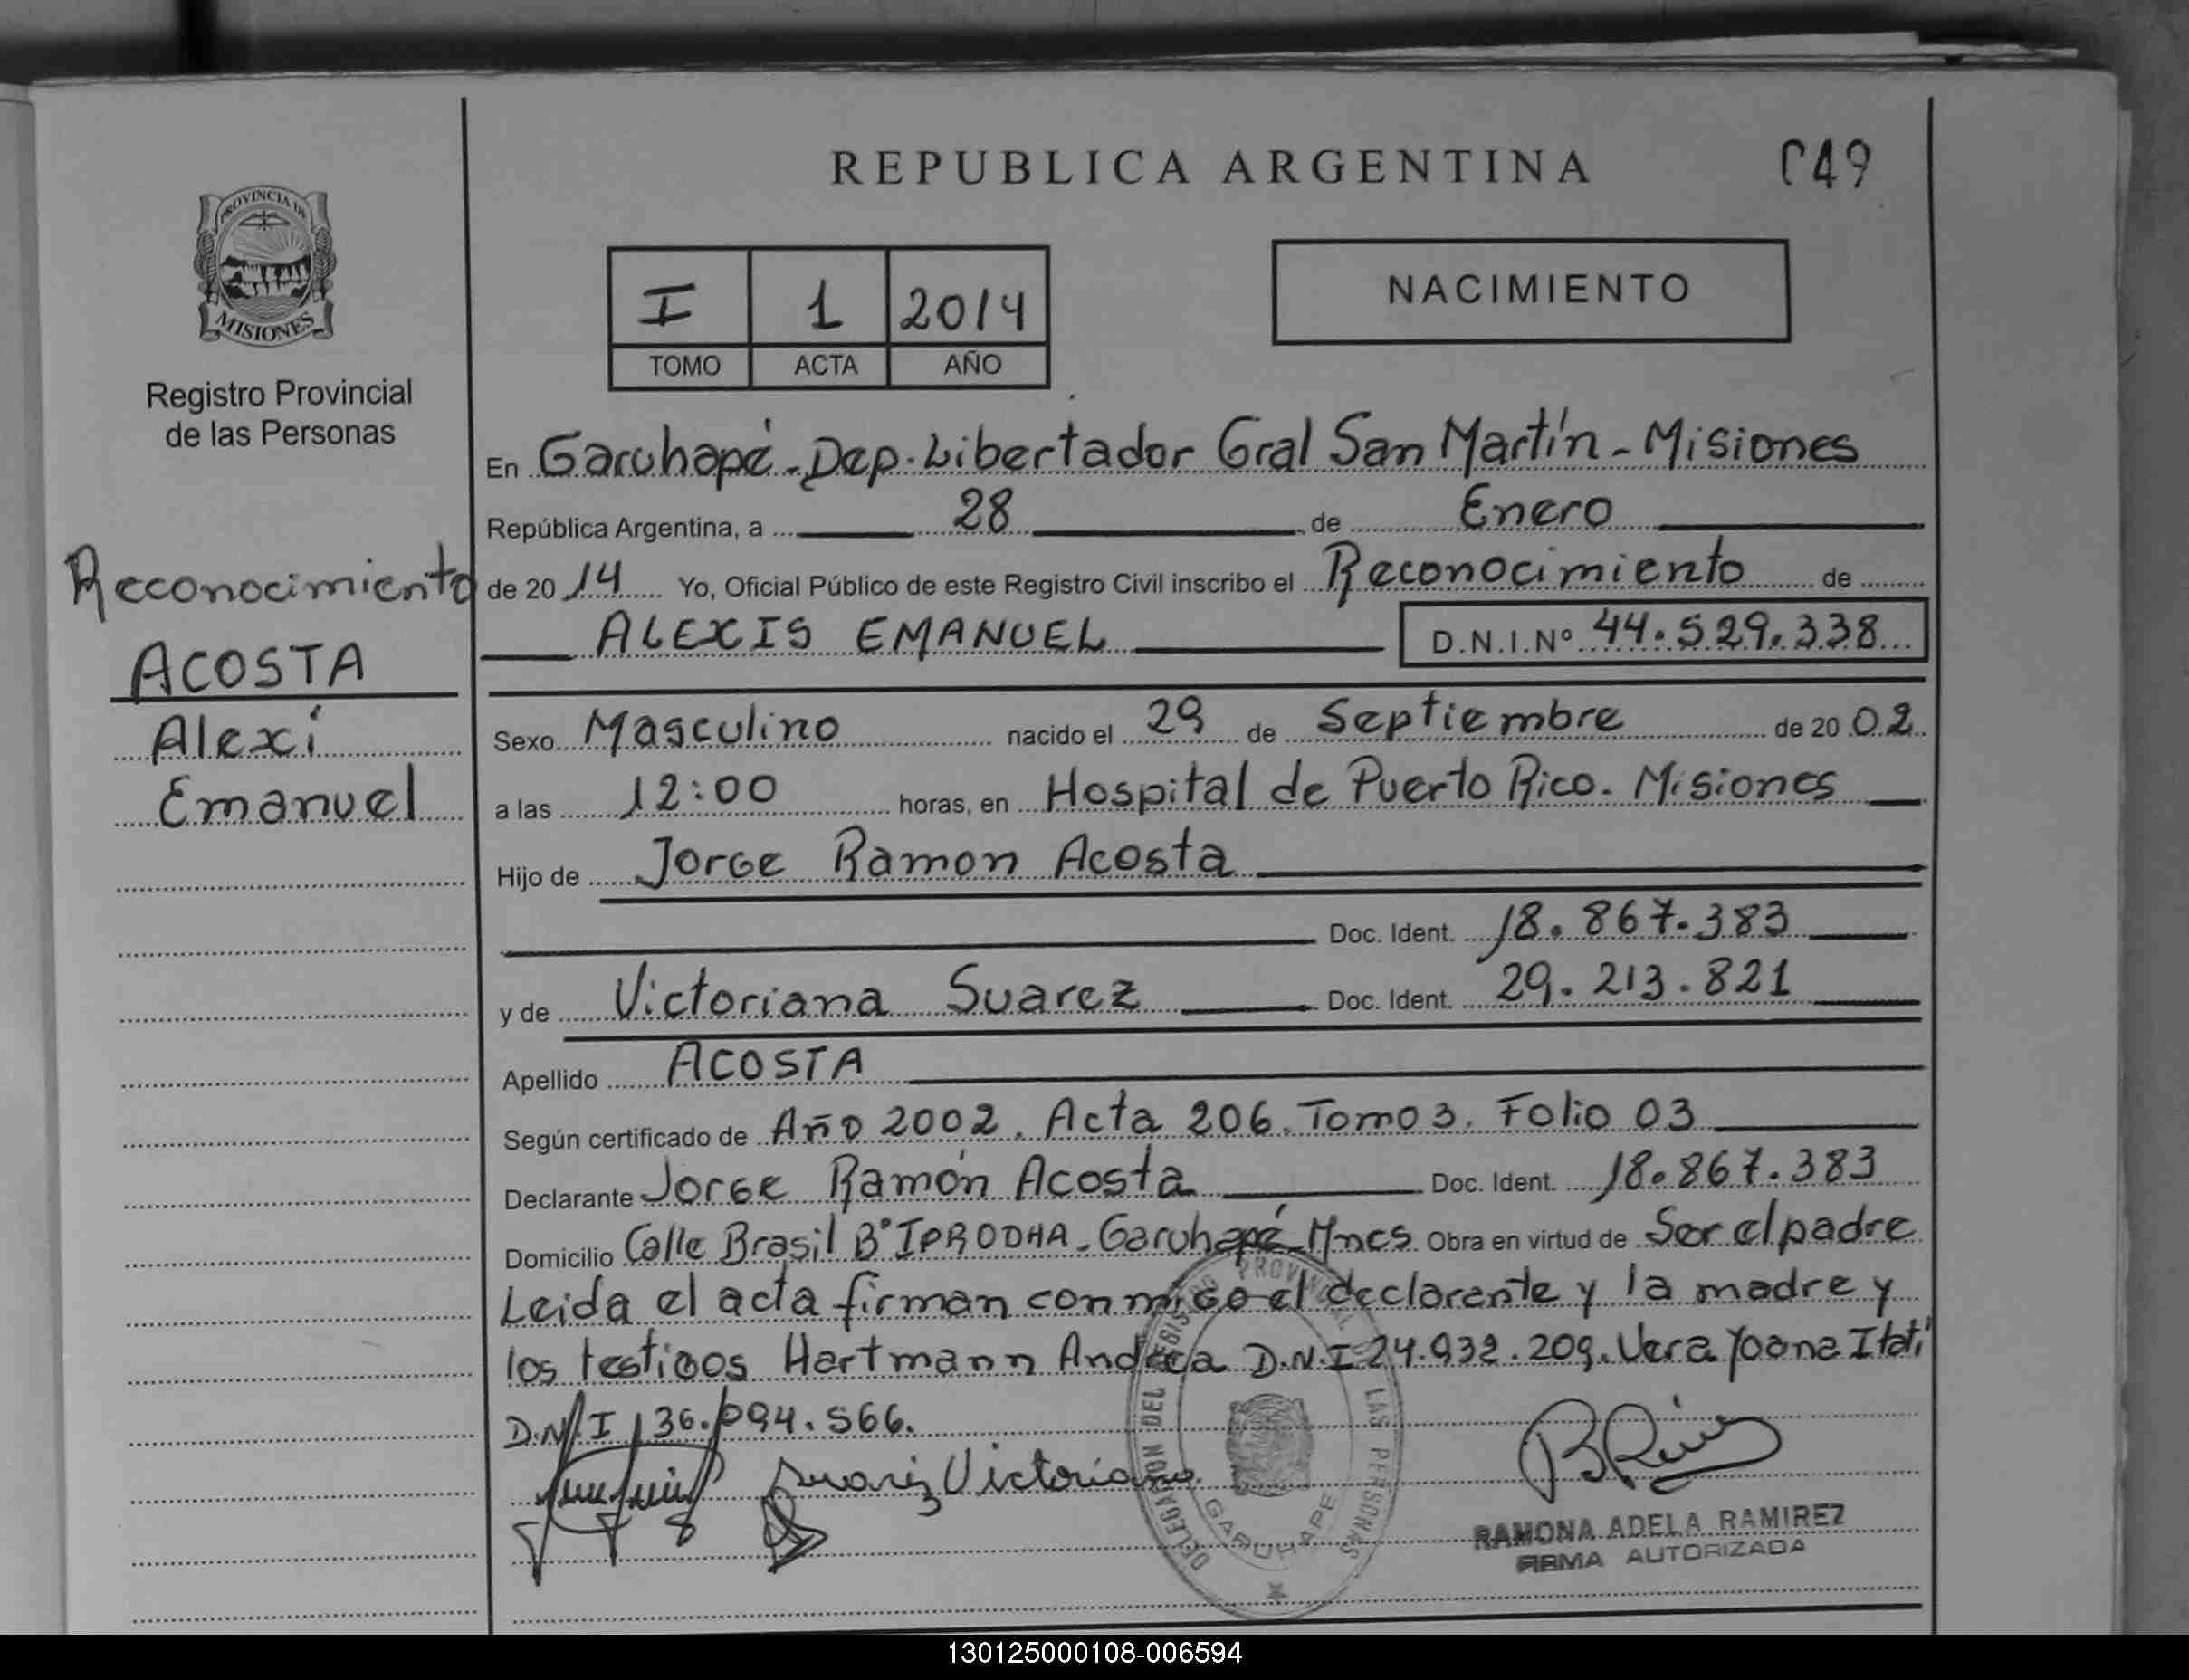 REPUBLICA ARGENTINA
C49
PROVINCIA DE
MISIONES
Registro Provincial
de las Personas
I 1 2014
TOMO ACTA AÑO
NACIMIENTO
Reconocimiento
ACOSTA
Alexi
Emanuel
En Garuhapé - Dep. Libertador Gral San Martín - Misiones
República Argentina, a 28 de Enero
de 20 14 Yo, Oficial Público de este Registro Civil inscribo el Reconocimiento de
ALEXIS EMANUEL D.N.I.Nº 44.529.338
Sexo Masculino nacido el 29 de Septiembre de 20 02
a las 12:00 horas, en Hospital de Puerto Rico. Misiones
Hijo de Jorge Ramon Acosta
Doc. Ident. 18.867.383
y de Victoriana Suarez Doc. Ident. 29.213.821
Apellido ACOSTA
Según certificado de Año 2002. Acta 206. Tomo 3. Folio 03
Declarante Jorge Ramón Acosta Doc. Ident. 18.867.383
Domicilio Calle Brasil B° IPRODHA - Garuhapé - Mnes Obra en virtud de Ser el padre
Leida el acta firman conmigo el declarante y la madre y
los testigos Hartmann Andrea D.N.I 24.932.209. Vera Yoana Itatí
D.N.I 36.094.566.
Suarez Victoriana
DELEGACION DEL REGISTRO PROVINCIAL LAS PERSONAS
GARUHAPE
RAMONA ADELA RAMIREZ
FIRMA AUTORIZADA
130125000108-006594